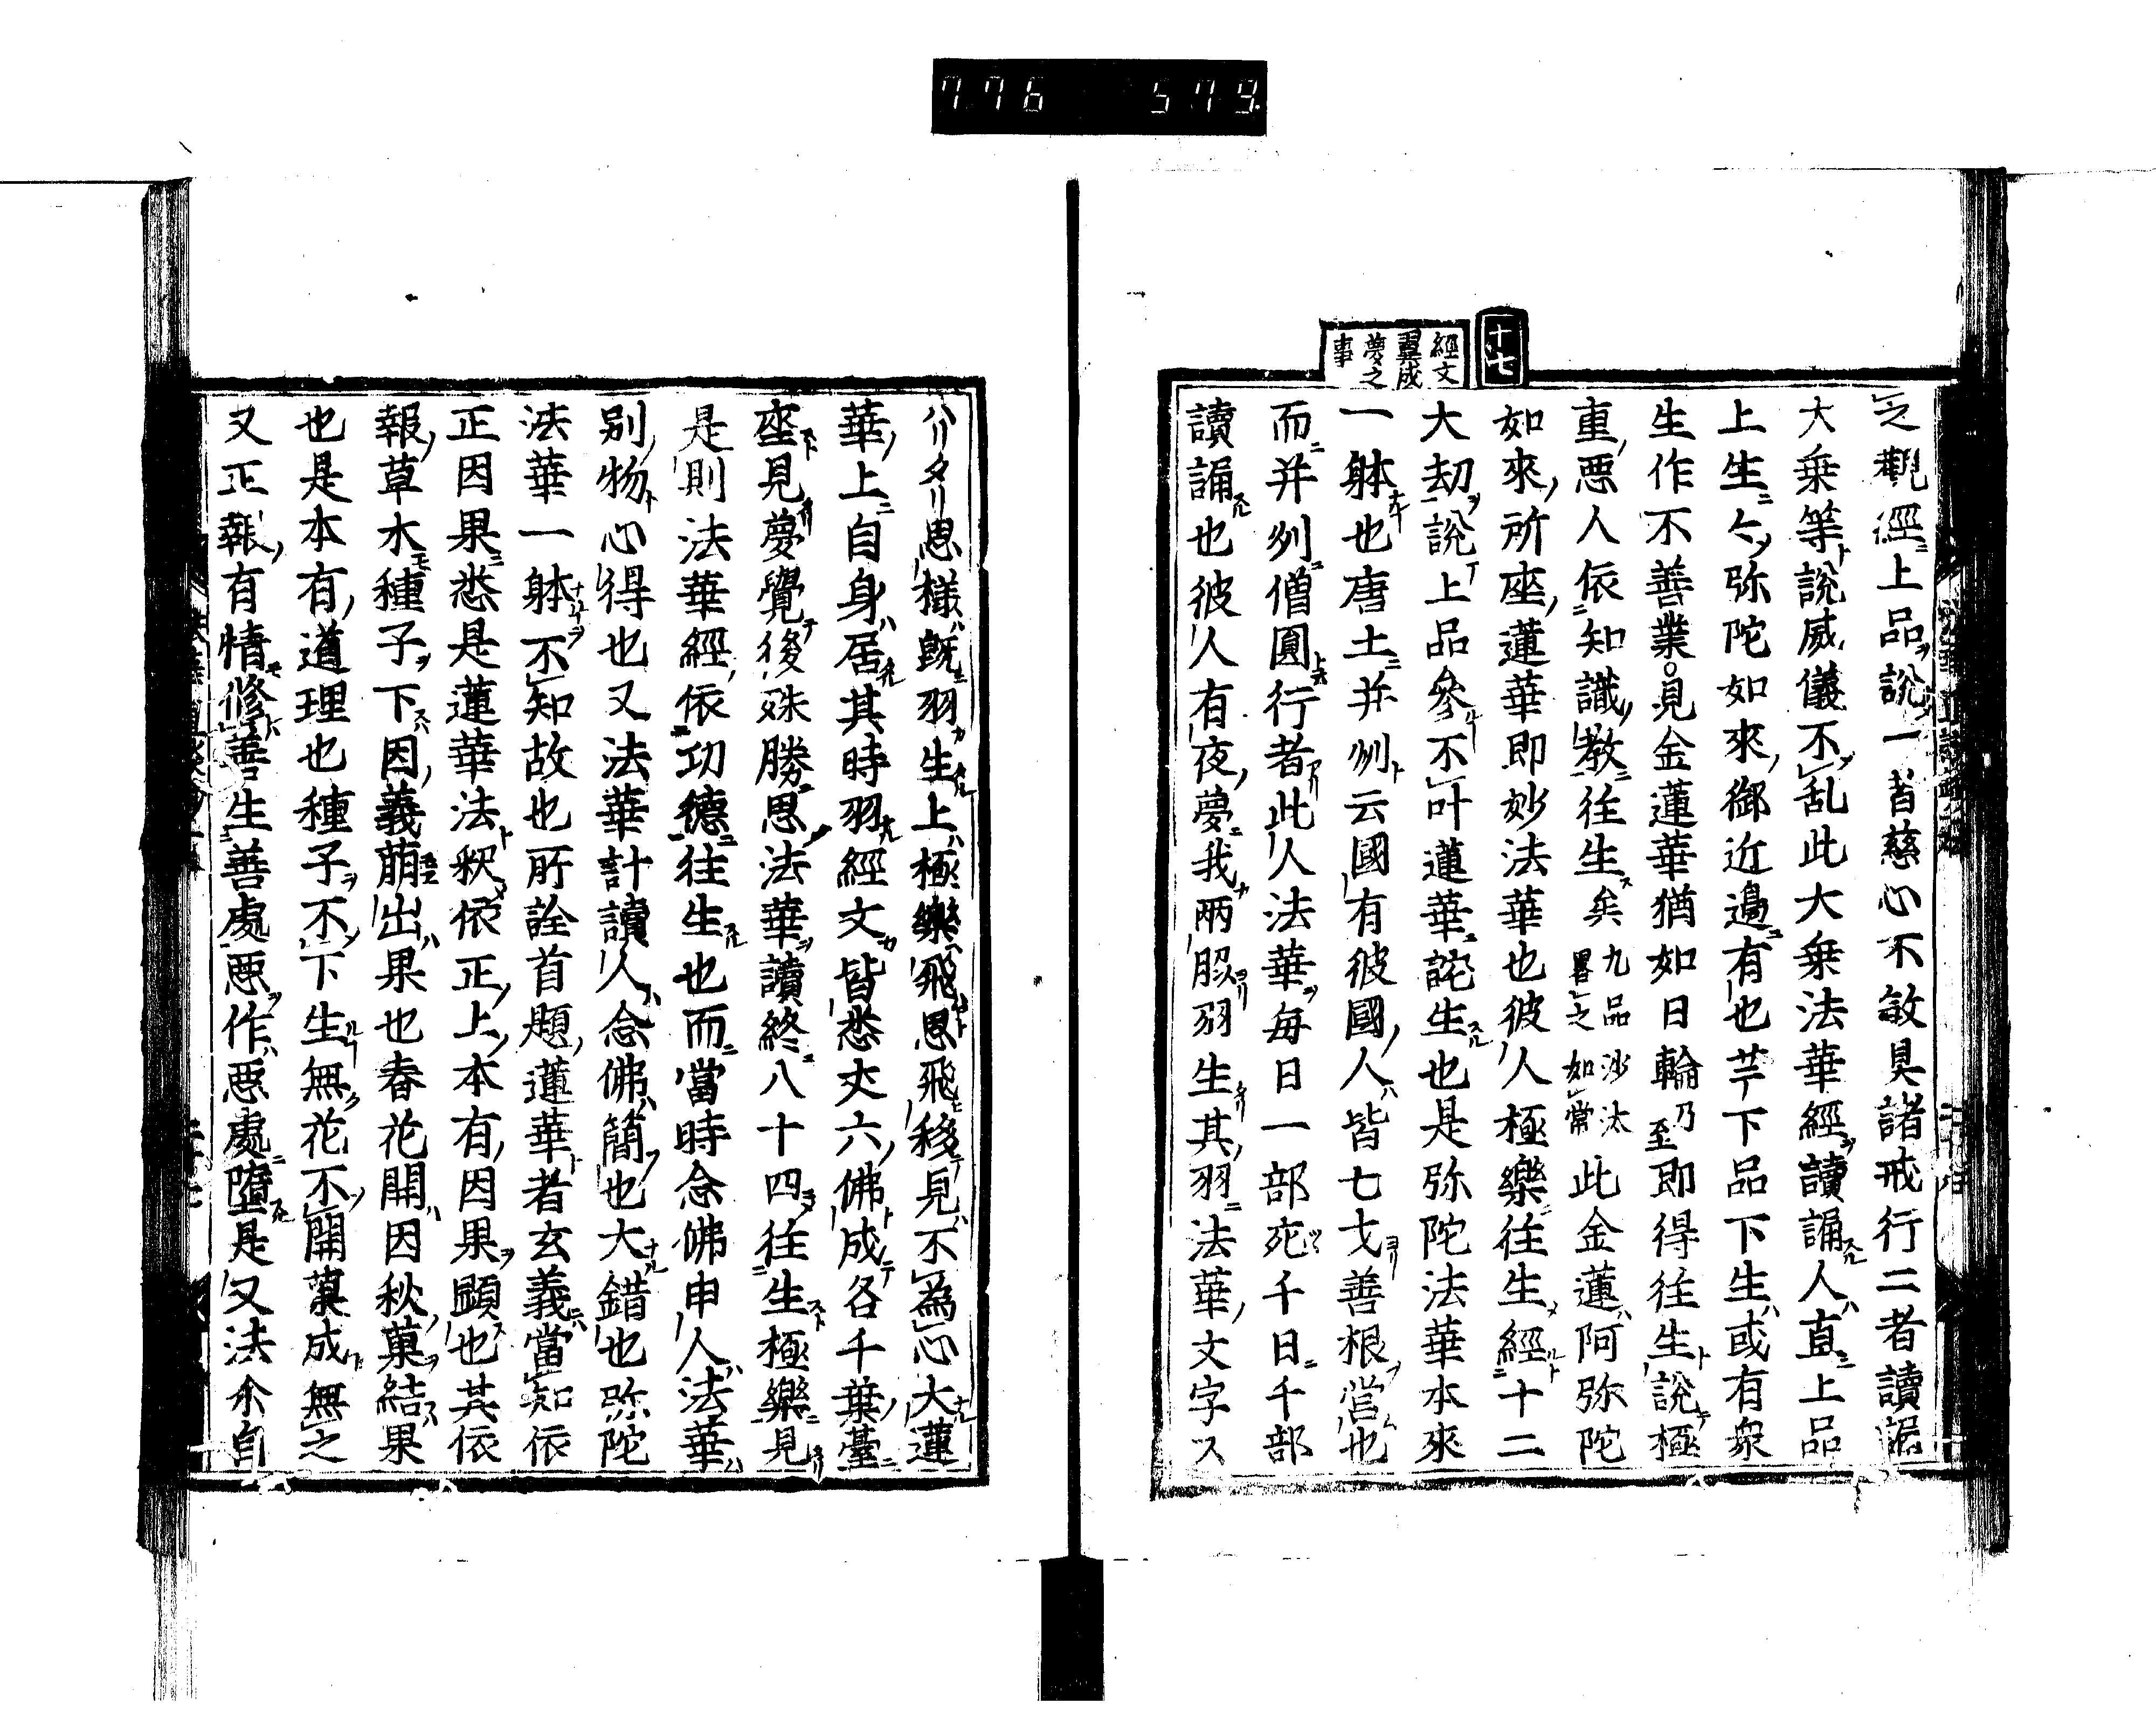 776 579
十七
經文
翼成
夢之
事
之觀經上品説一者慈心不敏具諸戒行二者讀誦
大乗等説威儀不乱此大乗法華經讀誦人直上品
上生今弥陀如來御近邊有也苄下品下生或有衆
生作不善業○見金蓮華猶如日輪乃至即得往生説極
重悪人依知識教往生矣九品沙汰如常畧之此金蓮阿弥陀
如來所座蓮華即妙法華也彼人極樂往生經十二
大劫説上品參不叶蓮華詫生也是弥陀法華本來
一躰也唐土并州云國有彼國人皆七才善根営也
而并州僧圓行者此人法華毎日一部宛千日千部
讀誦也彼人有夜夢我兩脇羽生其羽法華文字ス
ハリタリ思様既羽生上極樂飛思飛移見不為心大蓮
華上自身居其時羽經文皆悉丈六佛成各千葉臺
座見夢覺後殊勝思法華讀終八十四往生極樂見
是則法華經依功德往生也而當時念佛申人法華
別物心得也又法華計讀人念佛簡也大錯也弥陀
法華一躰不知故也所詮首題蓮華者玄義當知依
正因果悉是蓮華法釈依正上本有因果顕也其依
報草木種子下因義萠出果也春花開因秋菓結果
也是本有道理也種子不下生無花不開菓成無之
又正報有情修善生善處悪作悪處墮是又法尒自